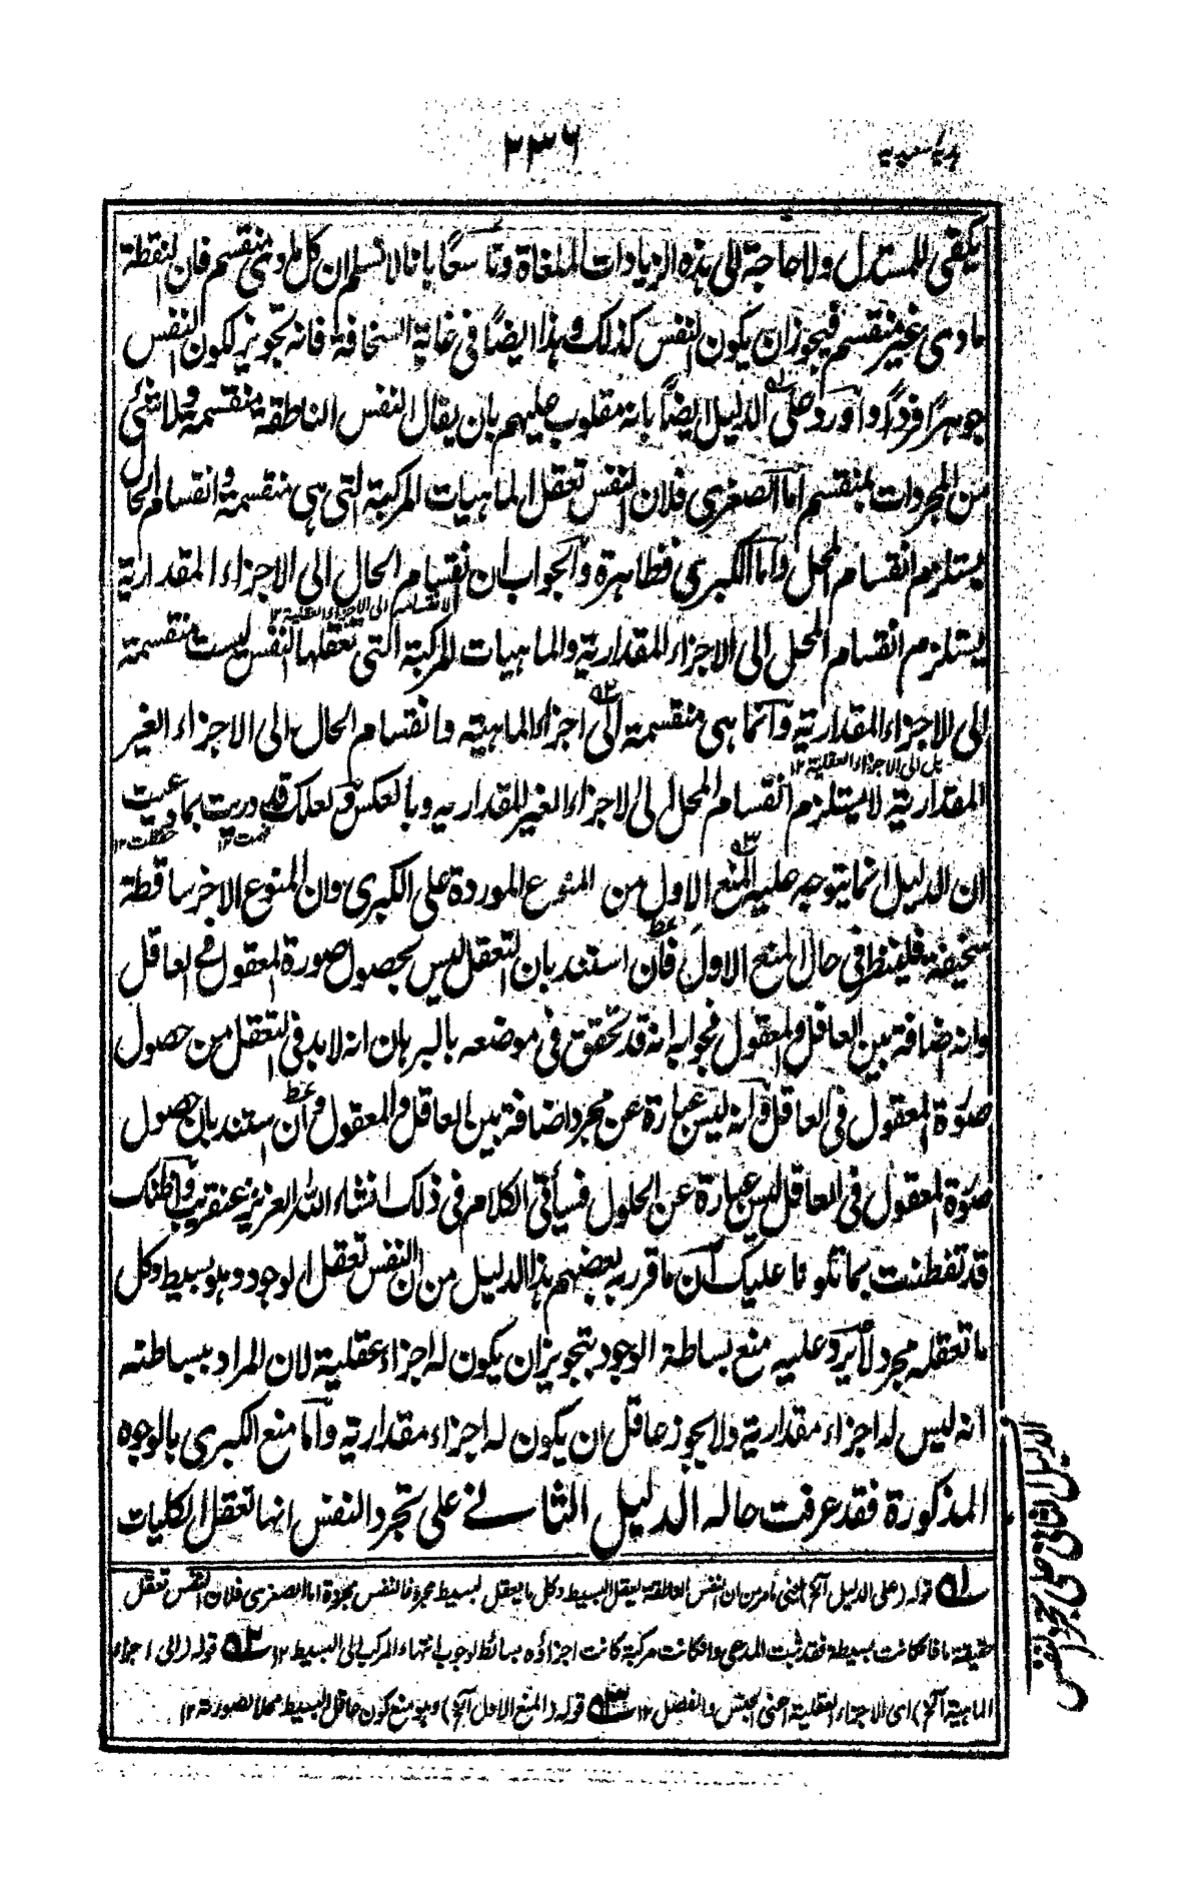 هدية سعيدية
٢٣٦
يكفي للمستدل ولا حاجة الى هذه الزيادات الملغاة وتاسعًا بانا لا نسلم ان كل مادي منقسم فان النقطة
مادي غير منقسم فيجوز ان يكون النفس كذلك وهذا ايضًا في غاية السخافة فانه تجويز لكون النفس
جوهرًا فردًا واورد على الدليل ايضًا بانه مقلوب عليهم بان يقال النفس الناطقة منقسمة ولا شئ
من المجردات بمنقسم اما الصغرى فلان النفس تعقل الماهيات المركبة التي هي منقسمة وانقسام الحال
يستلزم انقسام المحل واما الكبرى فظاهرة والجواب ان انقسام الحال الى الاجزاء المقدارية
الانقسام الى الاجزاء العقلية ١٢
يستلزم انقسام المحل الى الاجزاء المقدارية والماهيات المركبة التي تعقلها النفس ليست منقسمة
الى الاجزاء المقدارية وانما هي منقسمة الى اجزاء الماهية وانقسام الحال الى الاجزاء الغير
بل الى الاجزاء العقلية ١٢
المقدارية لا يستلزم انقسام المحل الى الاجزاء الغير المقدارية وبالعكس ولعلك قد دريت بما وعيت
فهمت ١٢ حفظت ١٢
ان الدليل انما يتوجه عليه المنع الاول من المنوع الموردة على الكبرى وان المنوع الاخر ساقطة
سخيفة فلينظر في حال المنع الاول فان استند بان التعقل ليس بحصول صورة المعقول في العاقل
وانه اضافة بين العاقل والمعقول فجوابه انه قد تحقق في موضعه بالبرهان انه لا بد في التعقل من حصول
صورة المعقول في العاقل وانه ليس عبارة عن مجرد اضافة بين العاقل والمعقول وان استند بان حصول
صورة المعقول في العاقل ليس عبارة عن الحلول فسيأتي الكلام في ذلك انشاء الله العزيز عنقريب واظنك
قد تفطنت بما تلونا عليك ان ما قرر به بعضهم هذا الدليل من ان النفس تعقل الوجود وهو بسيط وكل
ما تعقله مجرد لا يرد عليه منع بساطة الوجود بتجويز ان يكون له اجزاء عقلية لان المراد ببساطته
انه ليس له اجزاء مقدارية ولا يجوز عاقل ان يكون له اجزاء مقدارية واما منع الكبرى بالوجوه
المذكورة فقد عرفت حاله الدليل الثاني على تجرد النفس انها تعقل الكليات
١ه قوله (على الدليل آلخ) الذي مر من ان النفس الناطقة يعقل البسيط وكل ما يعقل البسيط مجرد فالنفس مجردة اما الصغرى فلان النفس تعقل
حقيقة ما فان كانت بسيطة فقد ثبت المدعى وان كانت مركبة كانت اجزاؤه بسائط لوجوب انتهاء المركب الى البسيط ١٢ ٢ه قوله (الى اجزاء
الماهية آلخ) اى الاجزاء العقلية اعنى الجنس والفصل ١٢ ٣ه قوله (المنع الاول آلخ) وهو منع كون عاقل البسيط محلا لصورته ١٢